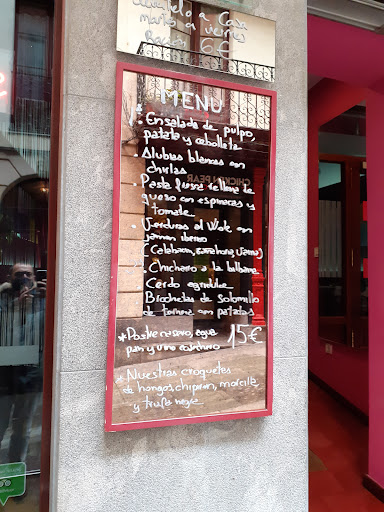 Llévatelo a Casa
Martes a viernes
Ración 6€
MENU
. Ensalada de pulpo,
patata y cebolleta
. Alubias blancas con
chirlas
. Pasta fresca rellena de
queso con espinacas y
tomate
. Verduras al Wok con
jamón ibérico
(Calabacín, zanahoria,
. Chicharro a la bilbaina
Cerdo agridulce
Brochetas de Solomillo
de ternera con patatas
*Postre casero, agua
pan y vino cosechero 15€
*Nuestras croquetas
de hongos, chipiron, morcilla
y trufa negra
CHICKEN PEAR